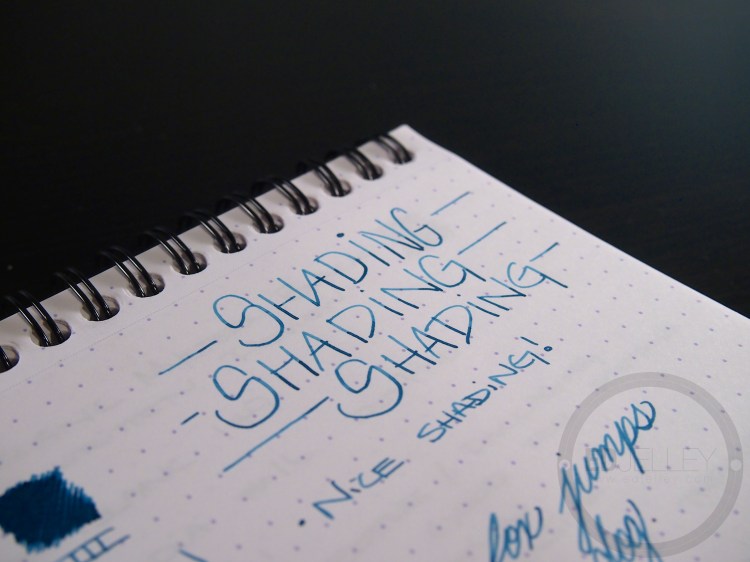 -SHADiNG-
-SHADING-
-SHADING-
· NicE SHADiNG!
fox jumps
dog
III